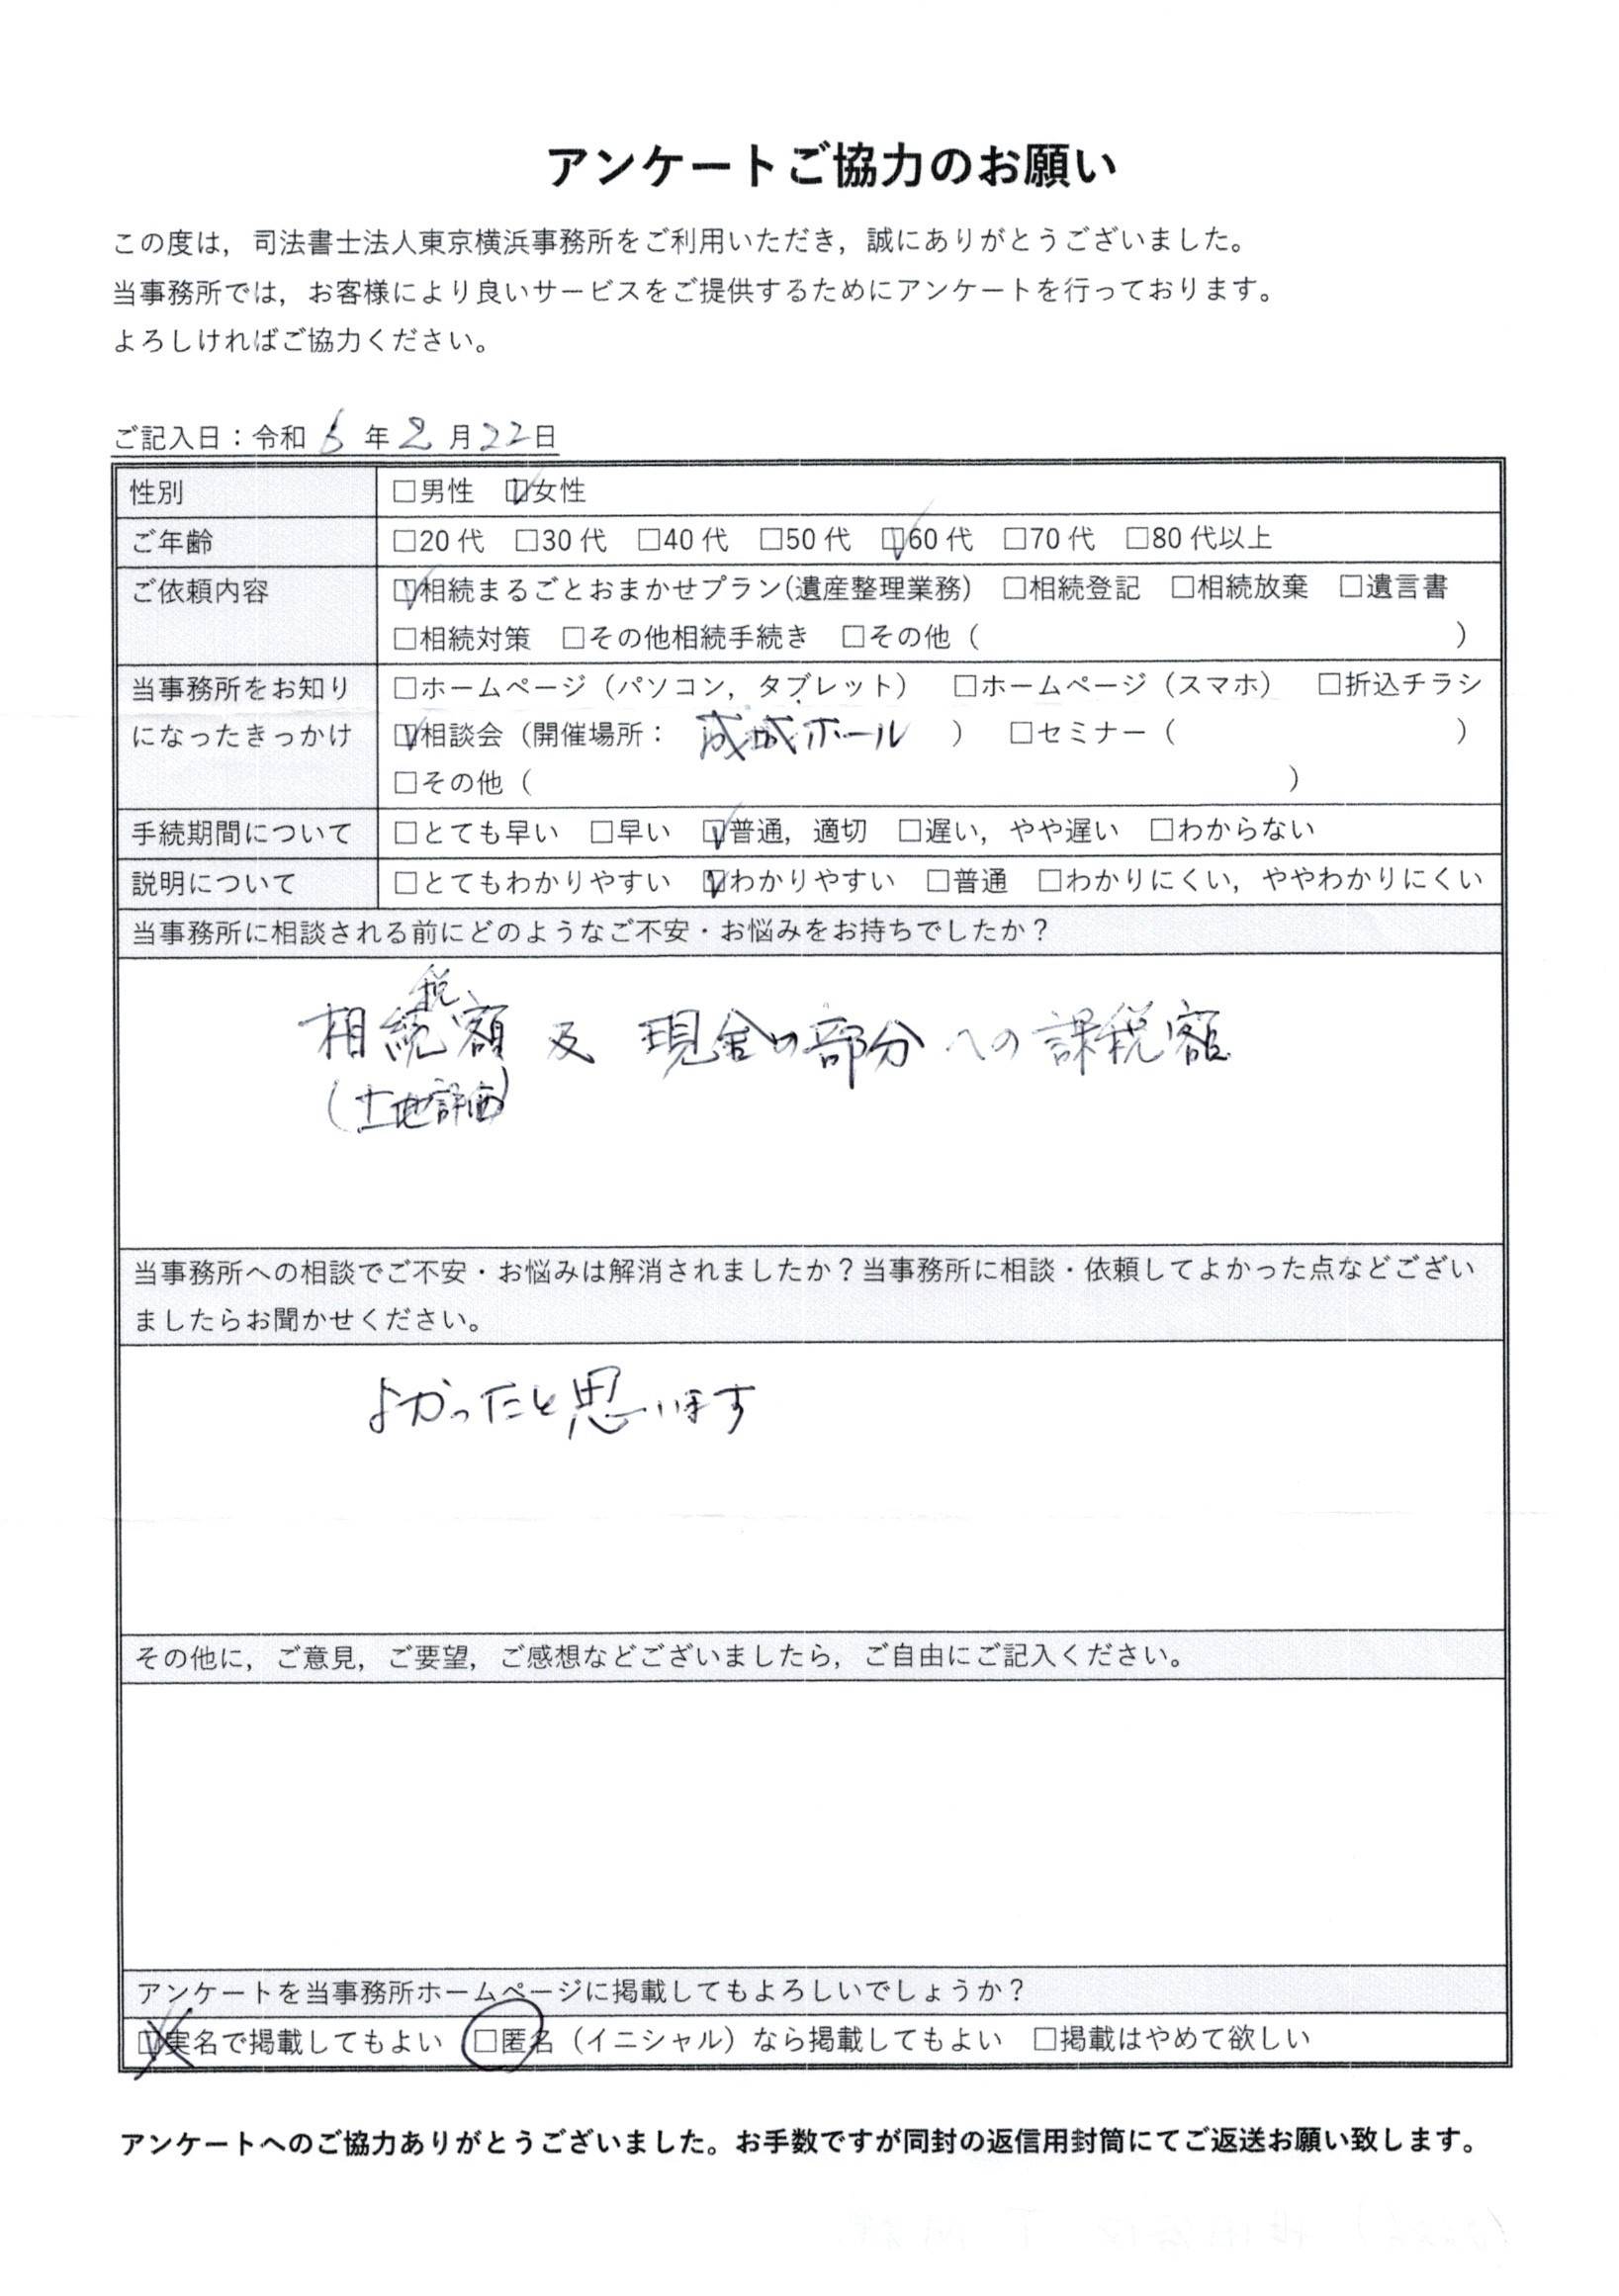 アンケートご協力のお願い
この度は，司法書士法人東京横浜事務所をご利用いただき，誠にありがとうございました。
当事務所では，お客様により良いサービスをご提供するためにアンケートを行っております。
よろしければご協力ください。
ご記入日：令和 年 2 月 22 日
性別 □男性 ☑女性
ご年齢 □20代 □30代 □40代 □50代 ☑60代 □70代 □80代以上
ご依頼内容 ☑相続まるごとおまかせプラン(遺産整理業務) □相続登記 □相続放棄 □遺言書
□相続対策 □その他相続手続き □その他（ ）
当事務所をお知り □ホームページ（パソコン，タブレット） □ホームページ（スマホ） □折込チラシ
になったきっかけ ☑相談会（開催場所： 成城ホール ） □セミナー（ ）
□その他（ ）
手続期間について □とても早い □早い ☑普通，適切 □遅い，やや遅い □わからない
説明について □とてもわかりやすい ☑わかりやすい □普通 □わかりにくい，ややわかりにくい
当事務所に相談される前にどのようなご不安・お悩みをお持ちでしたか？
相続税額 及 現金の部分への課税額
(土地評価)
当事務所への相談でご不安・お悩みは解消されましたか？当事務所に相談・依頼してよかった点などござい
ましたらお聞かせください。
よかったと思います
その他に，ご意見，ご要望，ご感想などございましたら，ご自由にご記入ください。
アンケートを当事務所ホームページに掲載してもよろしいでしょうか？
☑実名で掲載してもよい □匿名（イニシャル）なら掲載してもよい □掲載はやめて欲しい
アンケートへのご協力ありがとうございました。お手数ですが同封の返信用封筒にてご返送お願い致します。